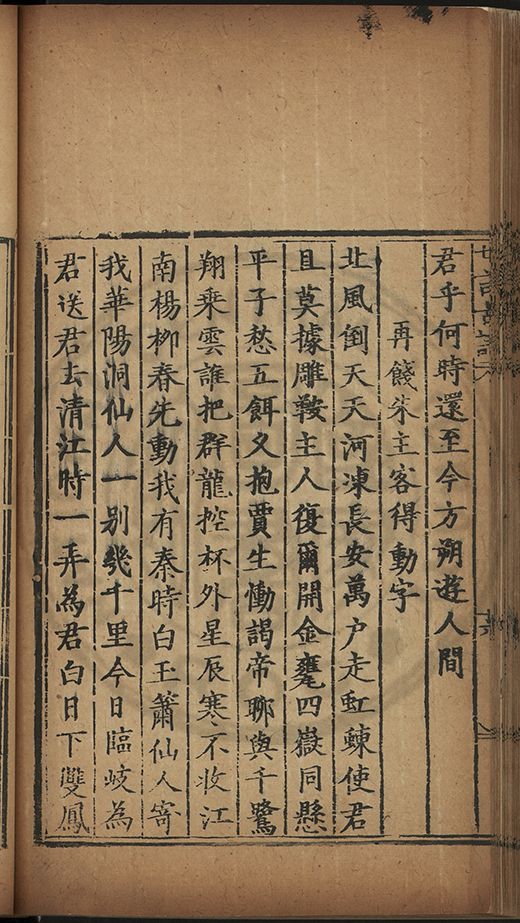 君乎何時還至今方朔遊人間
再餞朱主客得動字
北風倒天天河凍長安萬户走虹蝀使君
且莫據雕鞍主人復爾開金甕四嶽同懸
平子愁五餌又抱賈生慟謁帝聊與千鷺
翔乘雲誰把群龍控杯外星辰寒不收江
南楊柳春先動我有秦時白玉簫仙人寄
我華陽洞仙人一别幾千里今日臨岐為
君送君去清江時一弄為君白日下雙鳳